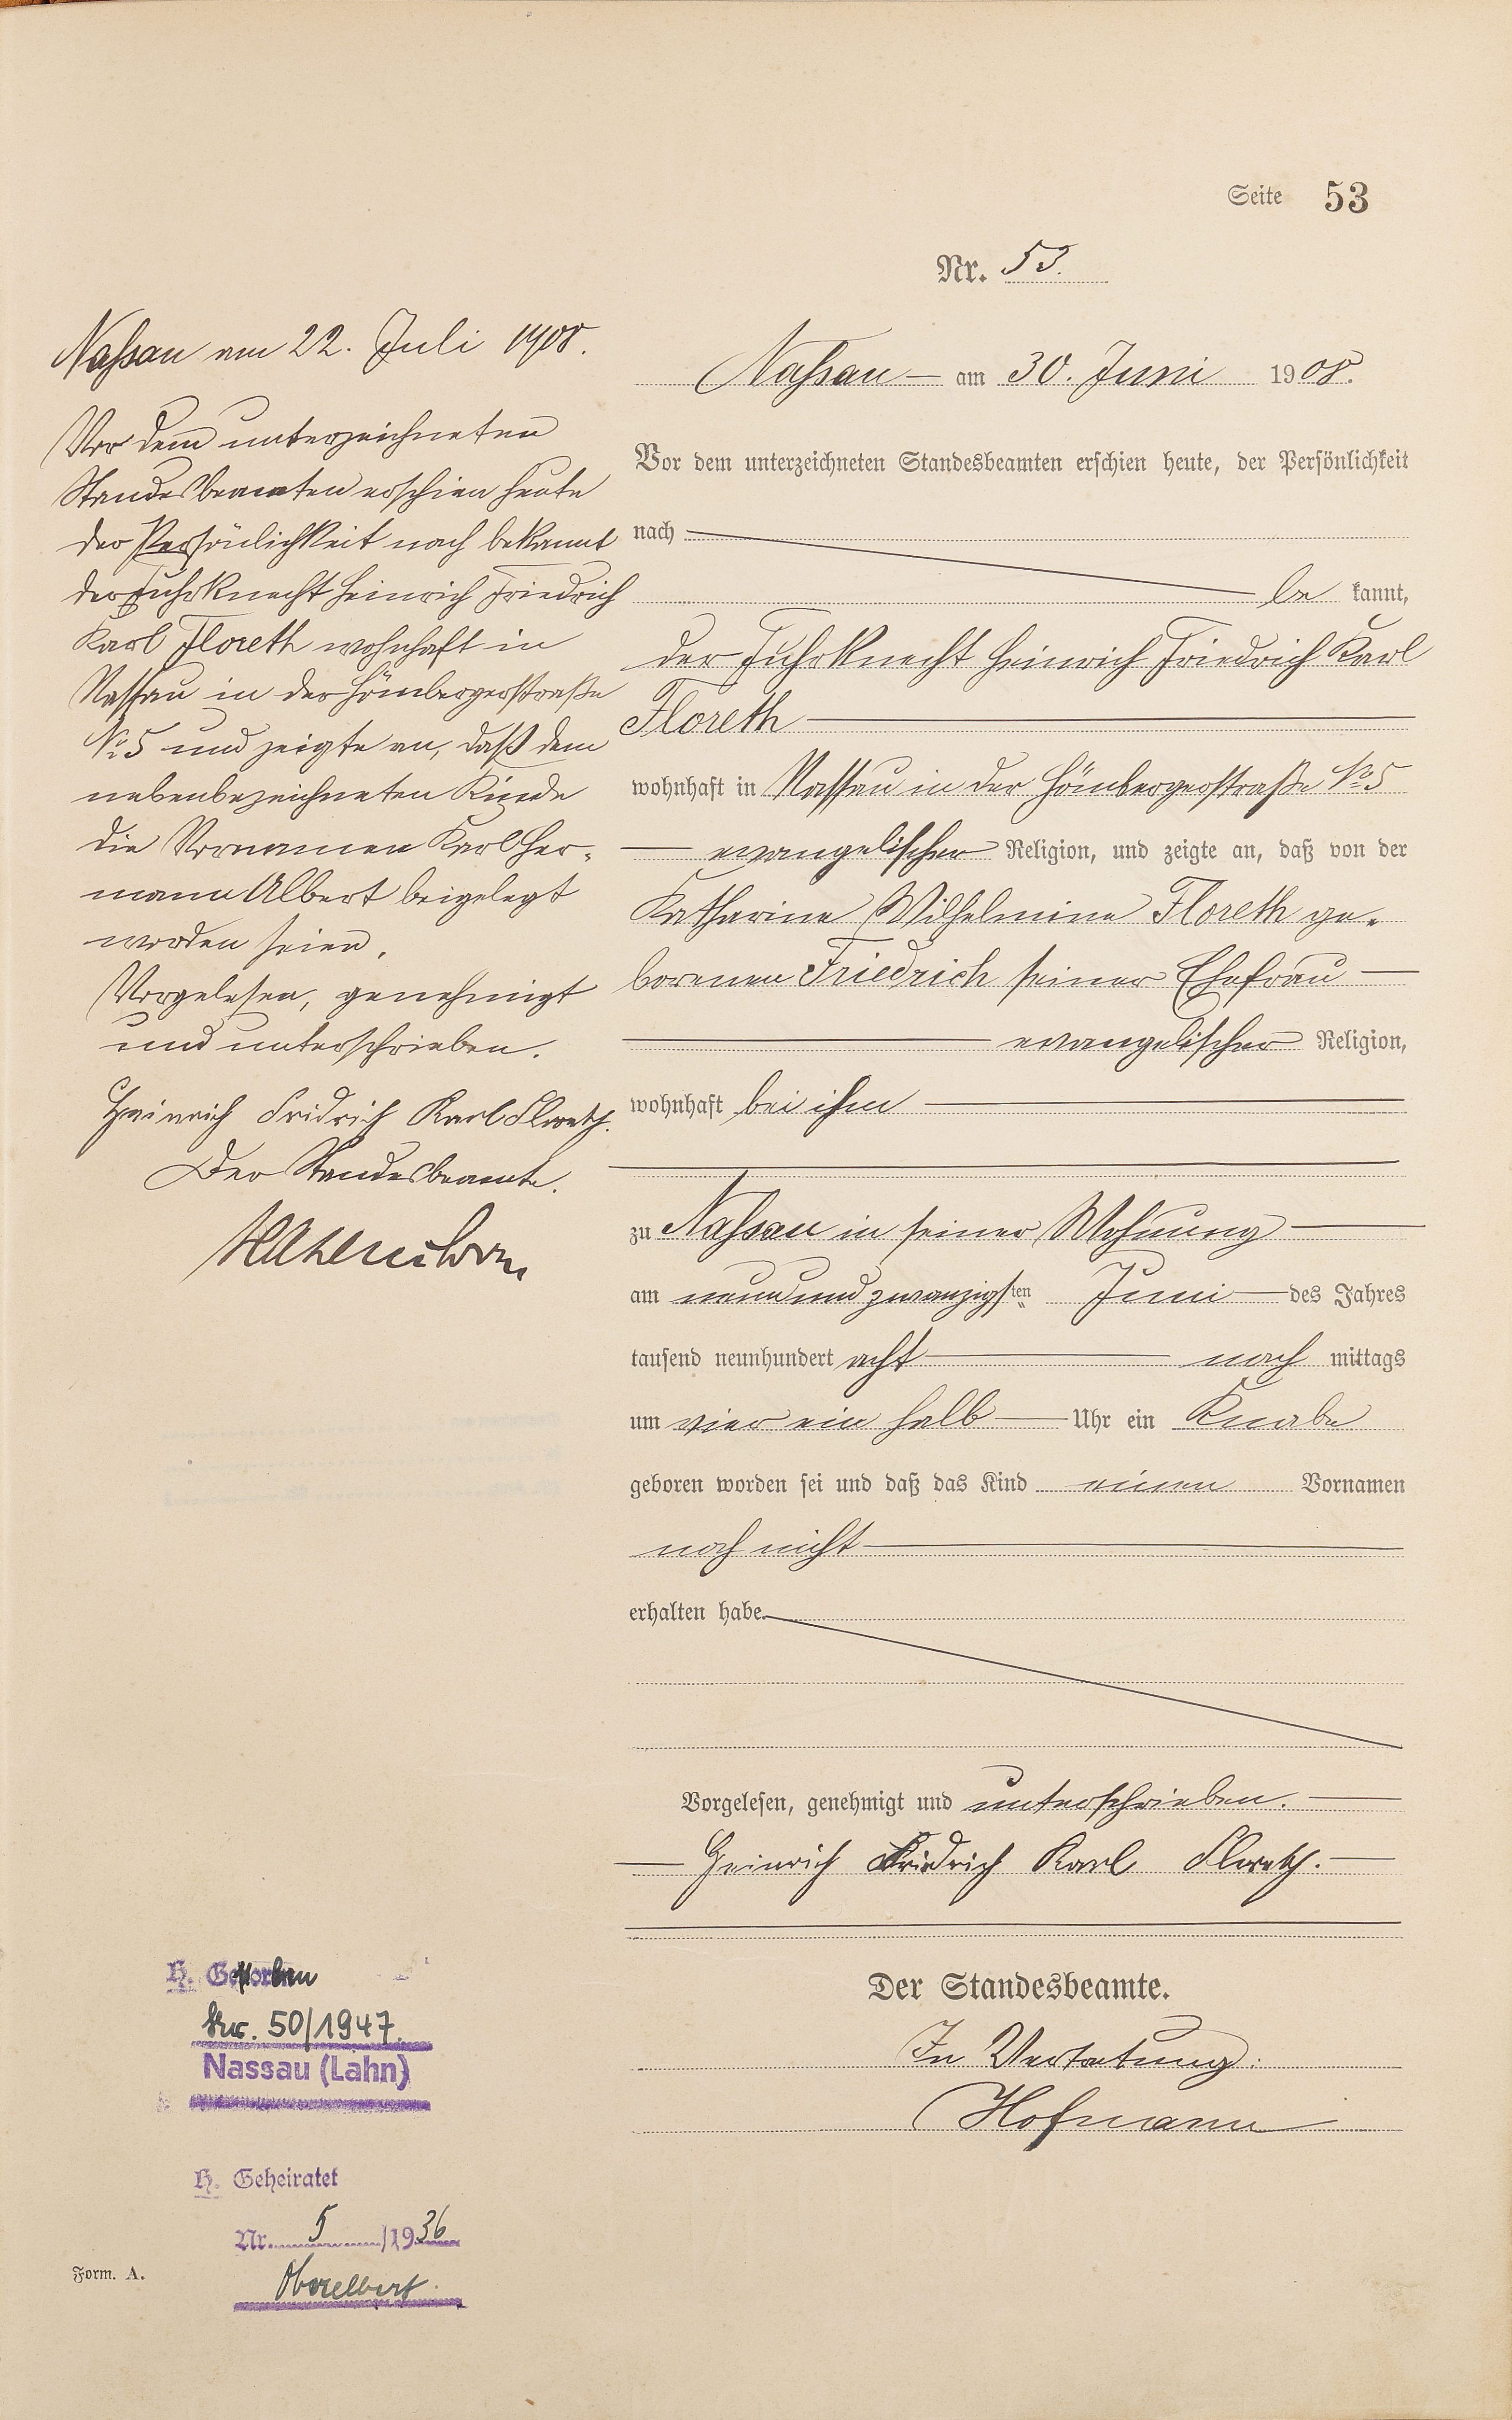 Seite 53
Nr. 53.
Nassau am 30. Juni 1908.
Vor dem unterzeichneten Standesbeamten erschien heute, der Persönlichkeit
nach
be kannt,
der Fuhrknecht Heinrich Friedrich Karl
Floreth
wohnhaft in Nassau in der Hömbergerstraße No 5
evangelischer Religion, und zeigte an, daß von der
Katharine Wilhelmine Floreth ge-
borenen Friedrich seiner Ehefrau
evangelischer Religion,
wohnhaft bei ihm
zu Nassau in seiner Wohnung
am neunundzwanzigsten Juni des Jahres
tausend neunhundert acht nach mittags
um vier ein halb Uhr ein Knabe
geboren worden sei und daß das Kind einen Vornamen
noch nicht
erhalten habe.
Vorgelesen, genehmigt und unterschrieben.
Heinrich Fridrich Karl Floreth.
Der Standesbeamte.
In Vertretung:
Hofmann
Nassau am 22. Juli 1908.
Vor dem unterzeichneten
Standesbeamten erschien heute
der Persönlichkeit nach bekannt
der Fuhrknecht Heinrich Friedrich
Karl Floreth wohnhaft in
Nassau in der Hömbergerstraße
No 5 und zeigte an, daß dem
nebenbezeichneten Kinde
die Vornamen Karl Her-
mann Albert beigelegt
worden seien.
Vorgelesen, genehmigt
und unterschrieben.
Heinrich Fridrich Karl Floreth.
Der Standesbeamte.
H. Gestorben
Nr. 50/1947.
Nassau (Lahn)
H. Geheiratet
Nr. 5 /1936
Oberelbert.
Form. A.